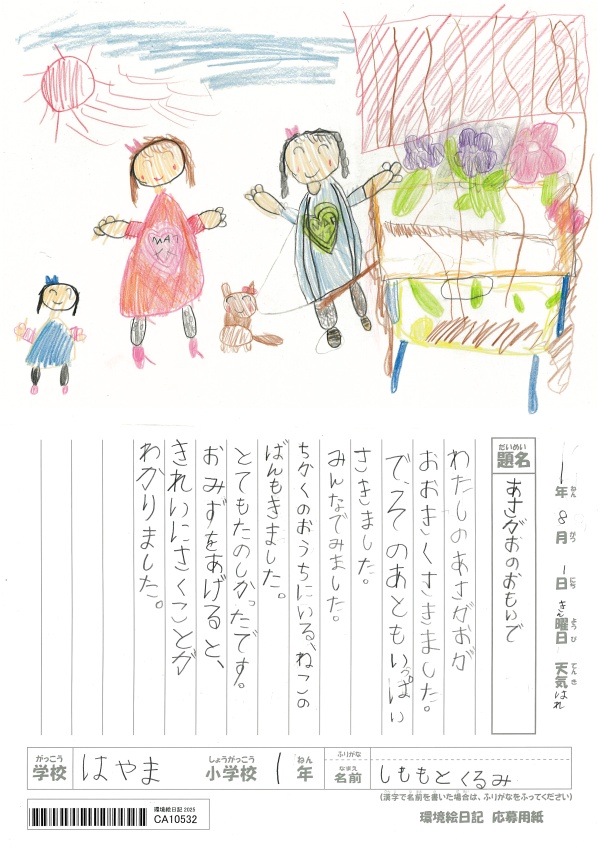 MAI
MAI
1年 8月 1日 きん曜日 天気 はれ
ねん がつ にち ようび てんき
だいめい
題名 あさがおのおもいで
わたしのあさがおが
おおきくさきました。
で、そのあともいっぱい
さきました。
みんなでみました。
ちかくのおうちにいる、ねこの
ばんもきました。
とてもたのしかったです。
おみずをあげると、
きれいにさくことが
わかりました。
がっこう しょうがっこう ねん ふりがな なまえ
学校 はやま 小学校 1年 名前 しももと くるみ
(漢字で名前を書いた場合は、ふりがなをふってください)
環境絵日記 2025
CA10532
環境絵日記 応募用紙